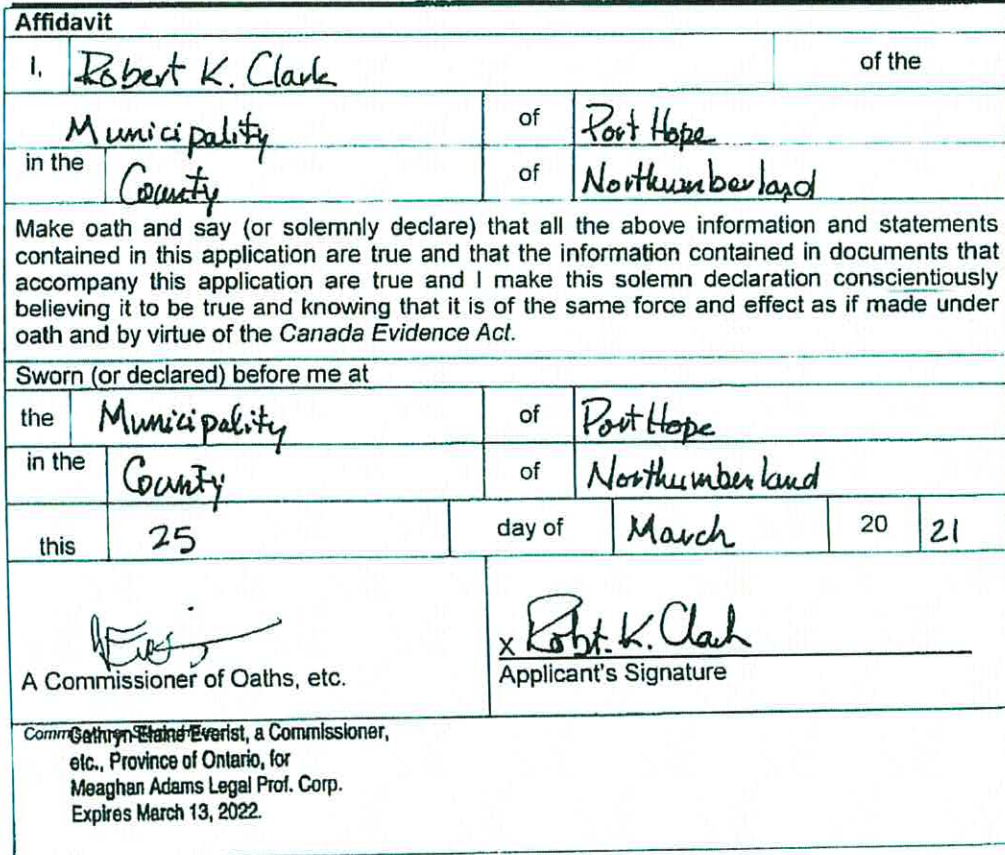 Affidavit
I, Robert K. Clark of the
Municipality of Port Hope
in the County of Northumberland
Make oath and say (or solemnly declare) that all the above information and statements
contained in this application are true and that the information contained in documents that
accompany this application are true and I make this solemn declaration conscientiously
believing it to be true and knowing that it is of the same force and effect as if made under
oath and by virtue of the Canada Evidence Act.
Sworn (or declared) before me at
the Municipality of Port Hope
in the County of Northumberland
this 25 day of March 20 21
x Robt. K. Clark
A Commissioner of Oaths, etc. Applicant's Signature
Cathryn Elaine Everist, a Commissioner,
etc., Province of Ontario, for
Meaghan Adams Legal Prof. Corp.
Expires March 13, 2022.